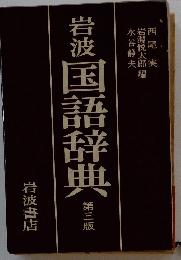 西尾 実
岩淵悦太郎 編
水谷静夫
岩波
国語辞典
第三版
岩波書店